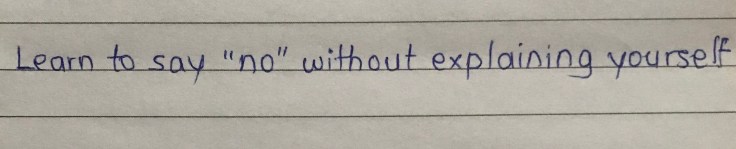 Learn to say "no" without explaining yourself